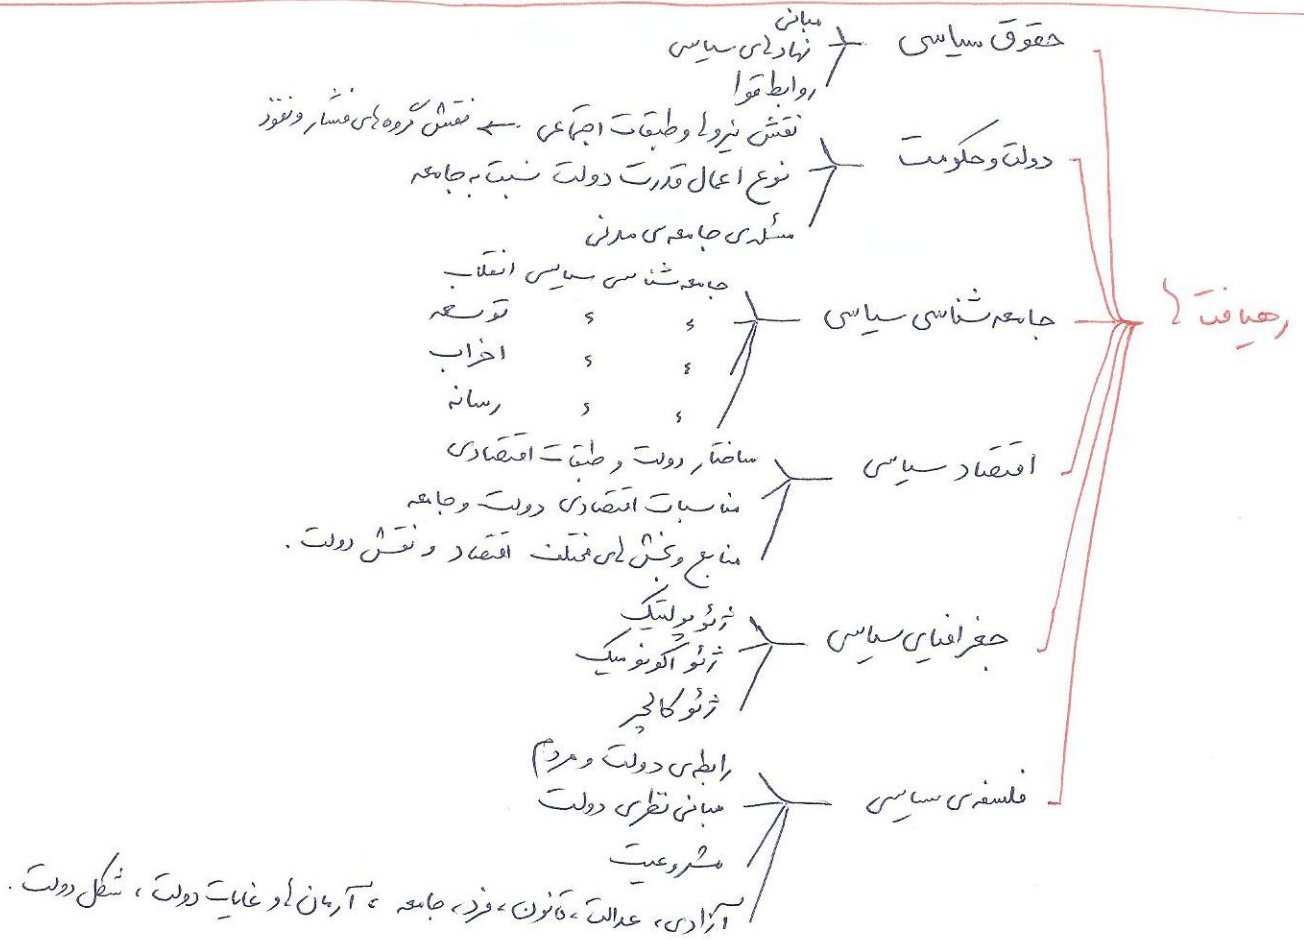 رهیافت ها
حقوق سیاسی
مبانی
نهادهای سیاسی
روابط قوا
دولت و حکومت
نقش نیروها و طبقات اجتماعی ← نقش گروه های فشار و نفوذ
نوع اعمال قدرت دولت نسبت به جامعه
مسئله ی جامعه ی مدنی
جامعه شناسی سیاسی
جامعه شناسی سیاسی انقلاب
ء ء توسعه
ء ء احزاب
ء ء رسانه
اقتصاد سیاسی
ساختار دولت و طبقات اقتصادی
مناسبات اقتصادی دولت و جامعه
منابع و بخش های مختلف اقتصاد و نقش دولت.
جغرافیای سیاسی
ژئوپولتیک
ژئواکونومیک
ژئوکالچر
فلسفه ی سیاسی
رابطه ی دولت و مردم
مبانی نظری دولت
مشروعیت
آزادی، عدالت، قانون، فرد، جامعه، آرمان ها و غایات دولت، شکل دولت.